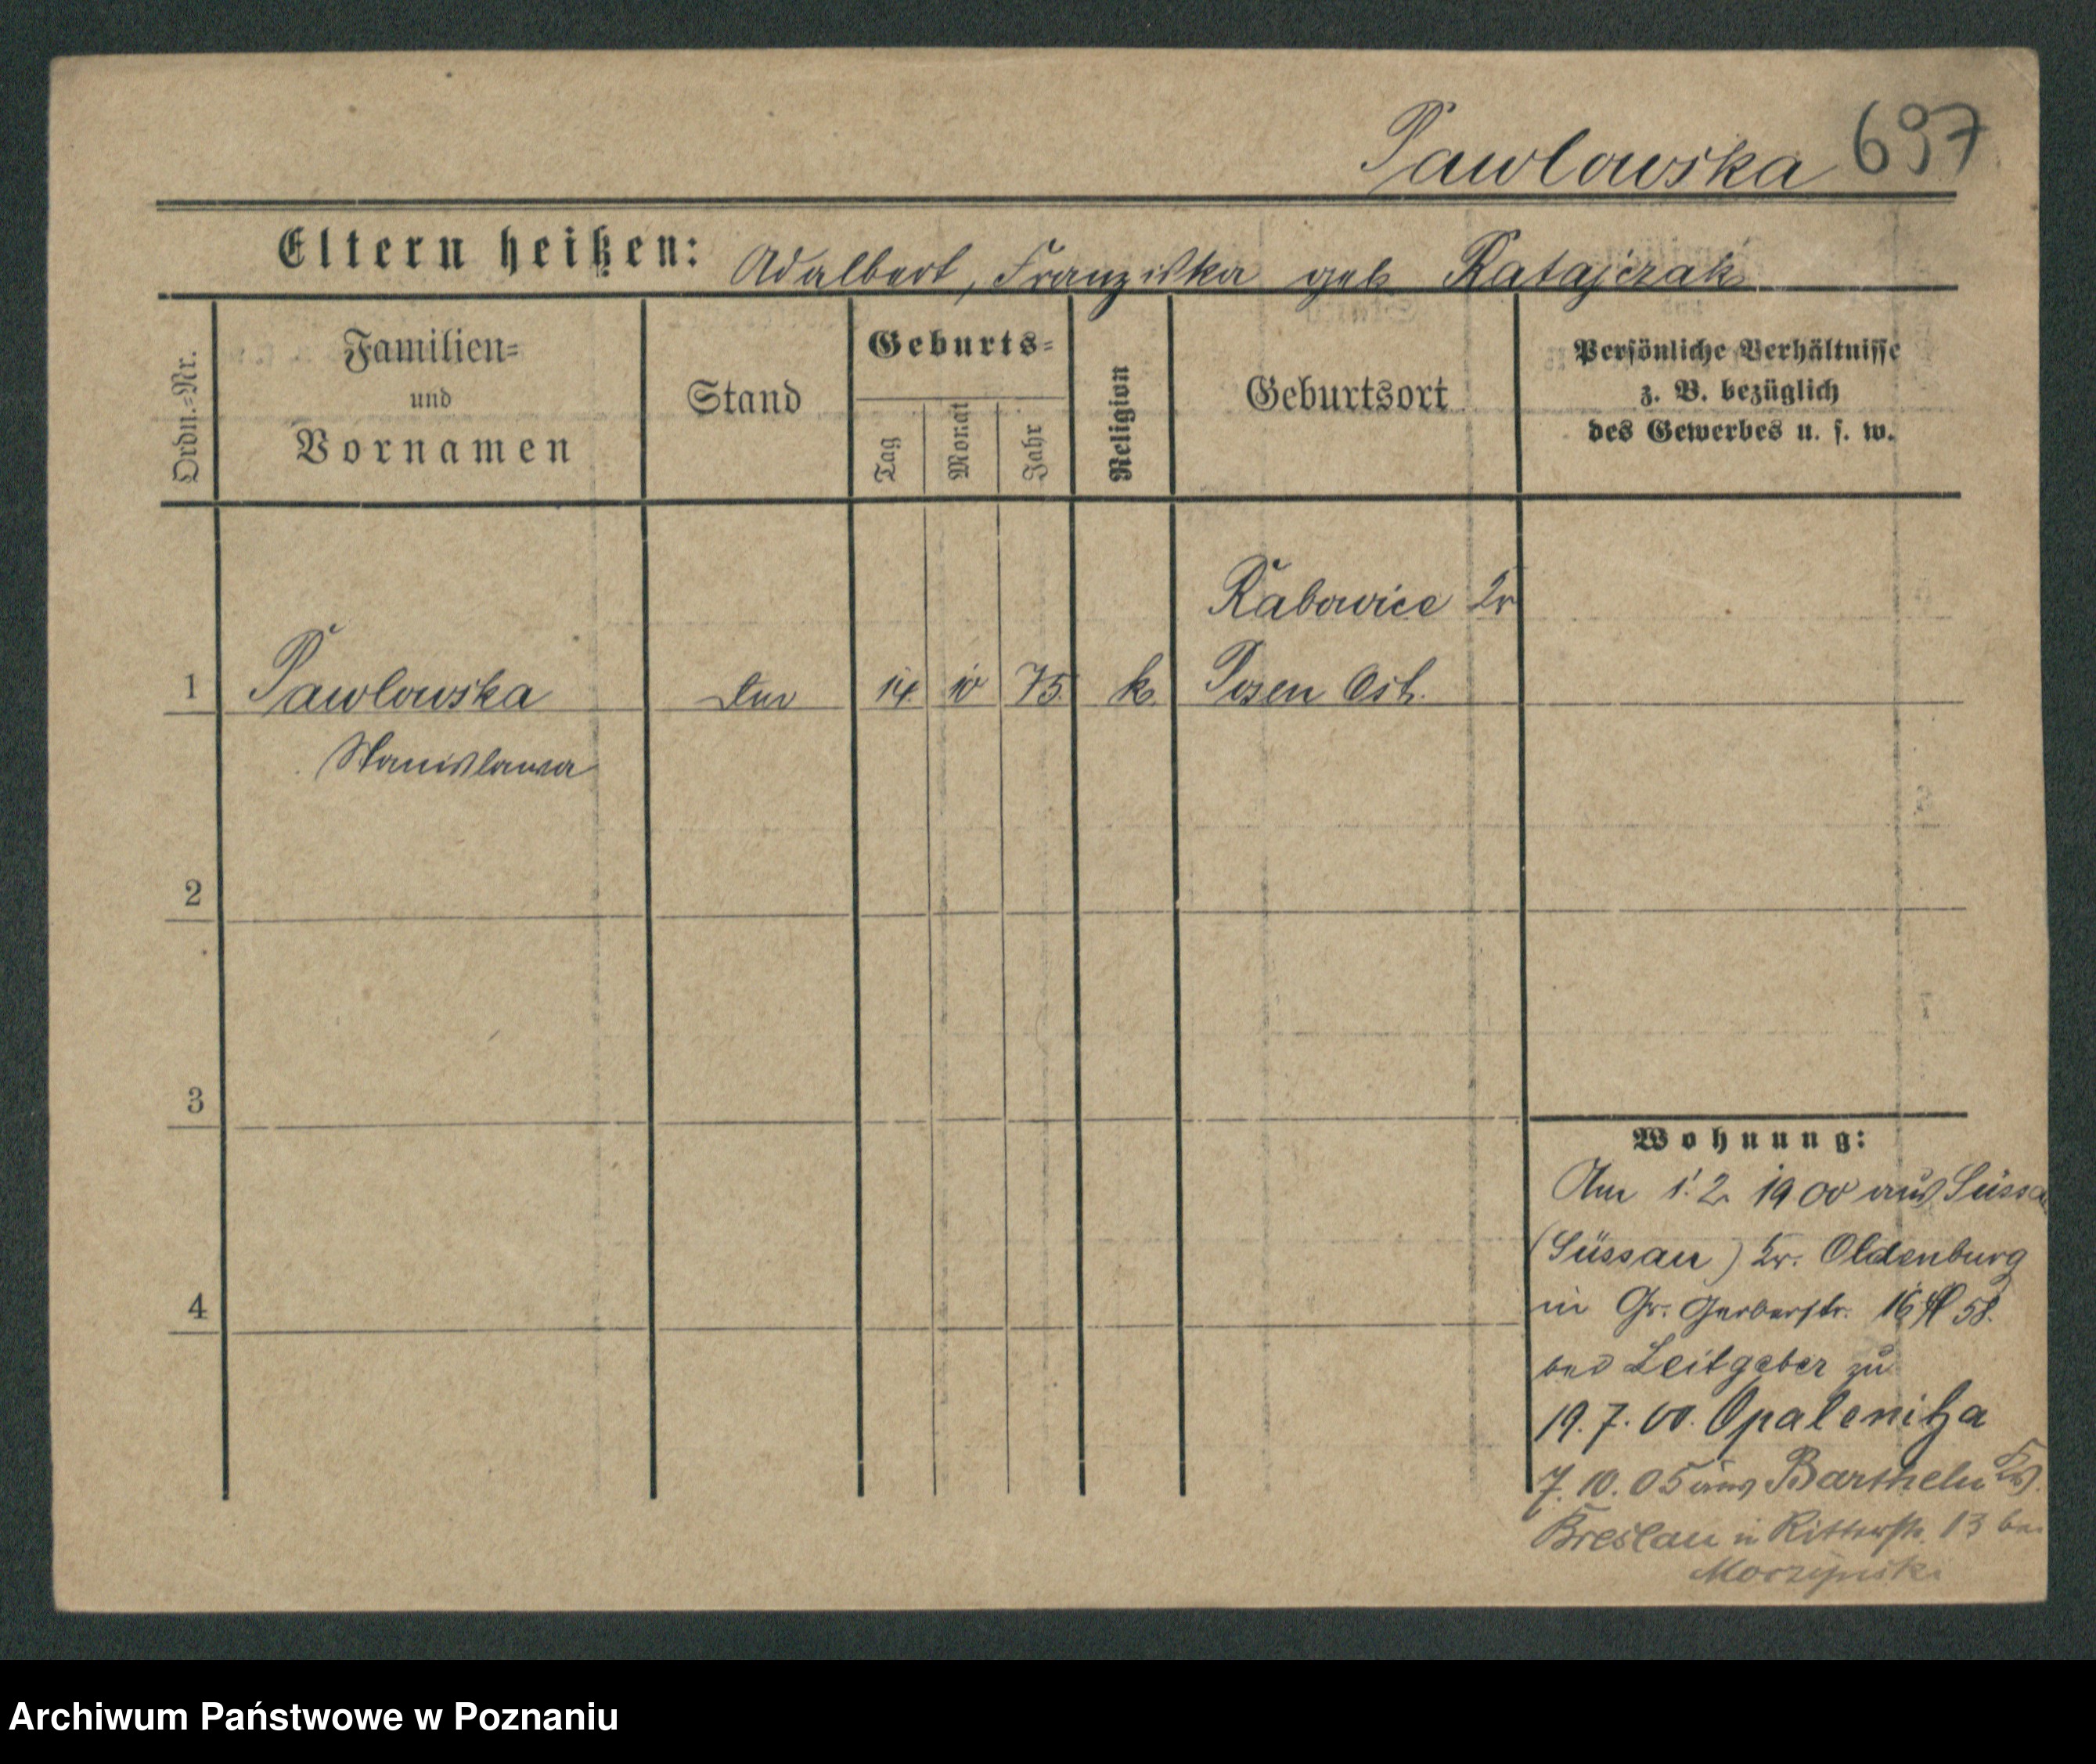 Pawlowska 697
Eltern heißen: Adalbert, Franziska geb Ratajczak
Ordn.=Nr.
Familien=
und
Vornamen
Stand
Geburts=
Tag
Monat
Jahr
Religion
Geburtsort
Persönliche Verhältnisse
z. B. bezüglich
des Gewerbes u. s. w.
Rabowice Kr
1 Pawlowska 14. 10 75. k. Posen Ost.
Stanislawa
2
3
4
Wohnung:
Am 1. 2. 1900 aus Süssau
(Süssau) Kr. Oldenburg
in Gr. Gerberstr. 16
bei Leitgeber zu
19. 7. 00. Opalenitza
7. 10. 05 aus Bartheln Kr.
Breslau in Ritterstr. 13 bei
Archiwum Państwowe w Poznaniu